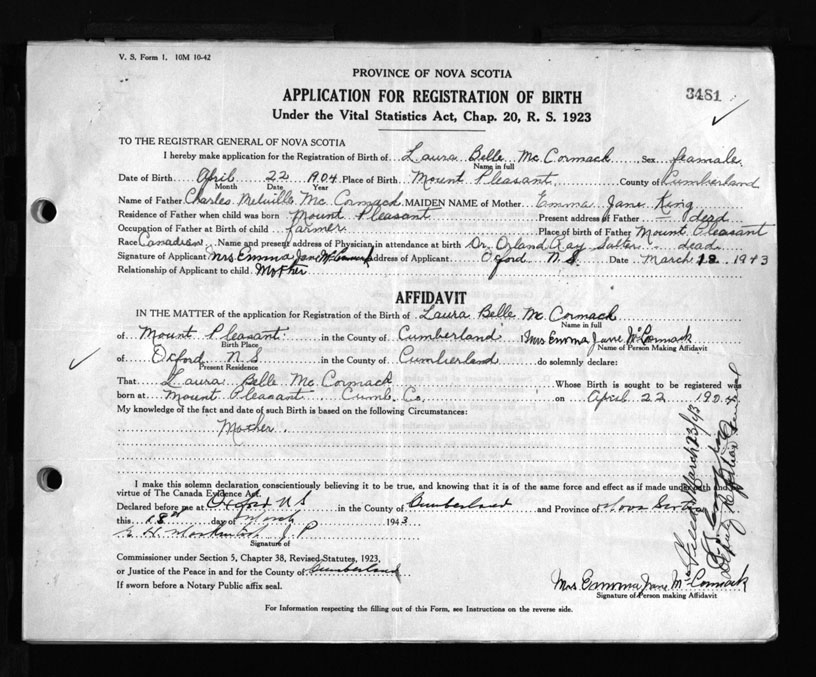 V. S. Form 1. 10M 10-42
PROVINCE OF NOVA SCOTIA
3481
APPLICATION FOR REGISTRATION OF BIRTH
Under the Vital Statistics Act, Chap. 20, R. S. 1923
TO THE REGISTRAR GENERAL OF NOVA SCOTIA
I hereby make application for the Registration of Birth of Laura Belle McCormack Sex feamale
Name in full
Date of Birth April 22 1904 Place of Birth Mount Pleasant County of Cumberland
Month Date Year
Name of Father Charles Melville McCormack MAIDEN NAME of Mother Emma Jane King
Residence of Father when child was born Mount Pleasant Present address of Father dead
Occupation of Father at Birth of child farmer Place of birth of Father Mount Pleasant
Race Canadian Name and present address of Physician, in attendance at birth Dr. Orland Ray Salter dead
Signature of Applicant Mrs Emma Jane McCormack Address of Applicant Oxford N.S. Date March 18 1943
Relationship of Applicant to child Mother
AFFIDAVIT
IN THE MATTER of the application for Registration of the Birth of Laura Belle McCormack
Name in full
of Mount Pleasant in the County of Cumberland I Mrs Emma Jane McCormack
Birth Place Name of Person Making Affidavit
of Oxford N S in the County of Cumberland do solemnly declare:
Present Residence
That Laura Belle McCormack Whose Birth is sought to be registered was
born at Mount Pleasant Cumb. Co. on April 22 1904
My knowledge of the fact and date of such Birth is based on the following Circumstances:
Mother.
I make this solemn declaration conscientiously believing it to be true, and knowing that it is of the same force and effect as if made under oath and by
virtue of The Canada Evidence Act.
Declared before me at Oxford N S in the County of Cumberland and Province of Nova Scotia
this 18th day of March 1943
J P
Signature of
Commissioner under Section 5, Chapter 38, Revised Statutes, 1923.
or Justice of the Peace in and for the County of Cumberland
If sworn before a Notary Public affix seal.
Mrs Emma Jane McCormack
Signature of Person making Affidavit
For Information respecting the filling out of this Form, see Instructions on the reverse side.
March 23/43
Deputy Registrar General